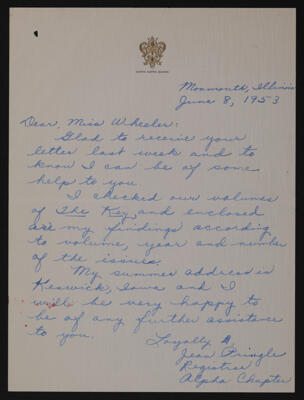 KAPPA KAPPA GAMMA
Monmouth, Illinois
June 8, 1953
Dear Miss Wheeler:
Glad to receive your
letter last week and to
know I can be of some
help to you.
I checked our volumes
of The Key, and enclosed
are my findings according
to volume, year and number
of the issues.
My summer address is
Keswick, Iowa and I
will be very happy to
be of any further assistance
to you.
Loyally,
Jean Pringle
Registrar
Alpha Chapter